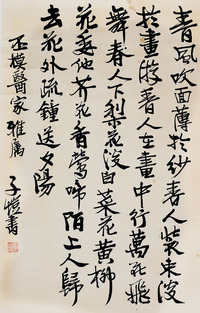 春風吹面薄於紗春人裝束淡
於畫遊春人在畫中行萬花飛
舞春人下梨花淡白菜花黃柳
花委地芥花香鶯啼陌上人歸
去花外疏鐘送夕陽
丕模醫家雅屬
子愷書